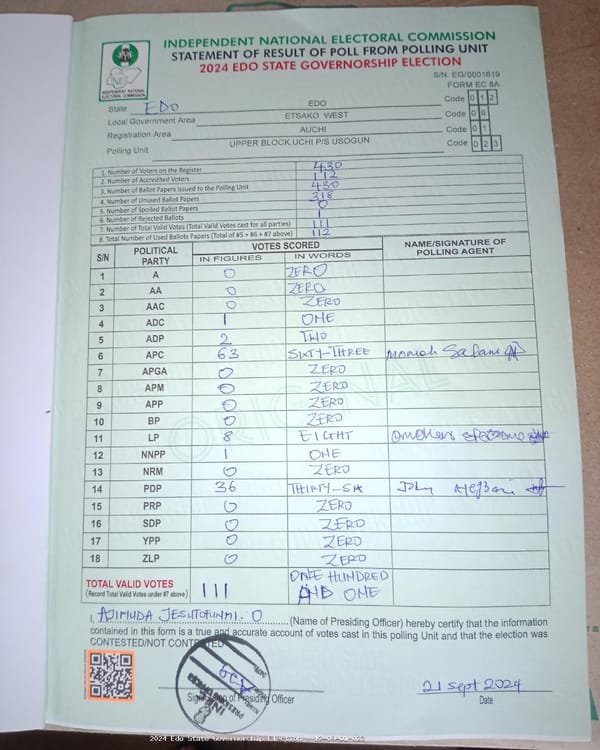 INDEPENDENT NATIONAL ELECTORAL COMMISSION
STATEMENT OF RESULT OF POLL FROM POLLING UNIT
2024 EDO STATE GOVERNORSHIP ELECTION
INDEPENDENT NATIONAL ELECTORAL COMMISSION
S/N: EG/0001619
FORM EC 8A
State EDO EDO Code 0 1 2
Local Government Area ETSAKO WEST Code 0 9
Registration Area AUCHI Code 0 1
Polling Unit UPPER BLOCK,UCHI P/S USOGUN Code 0 2 3
1. Number of Voters on the Register 430
2. Number of Accredited Voters 112
3. Number of Ballot Papers Issued to the Polling Unit 430
4. Number of Unused Ballot Papers 318
5. Number of Spoiled Ballot Papers 0
6. Number of Rejected Ballots 1
7. Number of Total Valid Votes (Total Valid Votes cast for all parties) 111
8. Total Number of Used Ballots Papers (Total of #5 + #6 + #7 above) 112
S/N POLITICAL PARTY VOTES SCORED NAME/SIGNATURE OF POLLING AGENT
IN FIGURES IN WORDS
1 A 0 ZERO
2 AA 0 ZERO
3 AAC 0 ZERO
4 ADC 1 ONE
5 ADP 2 TWO
6 APC 63 SIXTY-THREE
7 APGA 0 ZERO
8 APM 0 ZERO
9 APP 0 ZERO
10 BP 0 ZERO
11 LP 8 EIGHT
12 NNPP 1 ONE
13 NRM 0 ZERO
14 PDP 36 THIRTY-SIX
15 PRP 0 ZERO
16 SDP 0 ZERO
17 YPP 0 ZERO
18 ZLP 0 ZERO
ORIGINAL
TOTAL VALID VOTES 111 ONE HUNDRED
(Record Total Valid Votes under #7 above) AND ONE
I, AJIMUDA JESUTOFUNMI. O (Name of Presiding Officer) hereby certify that the information
contained in this form is a true and accurate account of votes cast in this polling Unit and that the election was
CONTESTED/NOT CONTESTED
Signature of Presiding Officer
21 Sept 2024
Date
2024 Edo State Governorship Election